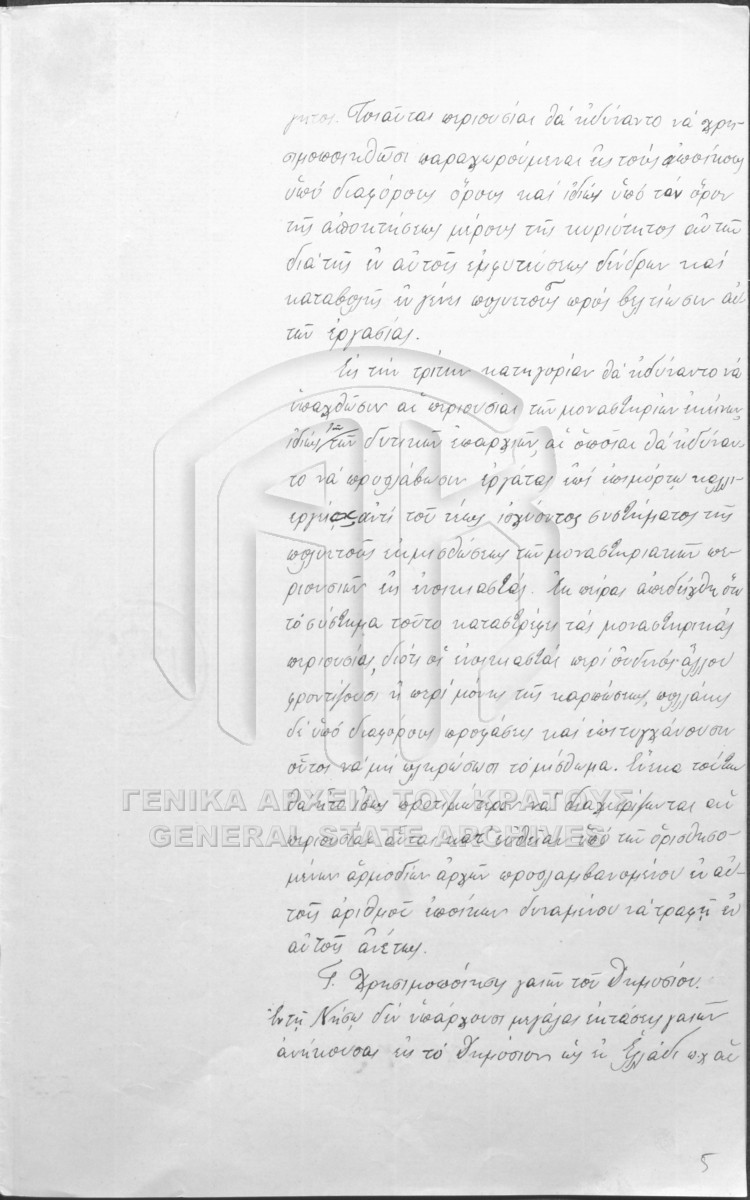 γητος. Τοιαῦται περιουσίαι θὰ ἠδύναντο νὰ χρη-
σιμοποιηθῶσι παραχωρούμεναι εἰς τοὺς ἐποίκους
ὑπὸ διαφόρους ὅρους καὶ ἰδίως ὑπὸ τὸν ὅρον
τῆς ἀποκτήσεως μέρους τῆς κυριότητος αὐτῶν
διὰ τῆς ἐν αὐτοῖς ἐμφυτεύσεως δένδρων καὶ
καταβολῆς ἐν γένει πρὸς βελτίωσιν αὐ
τῶν ἐργασίας.
Εἰς τὴν τρίτην κατηγορίαν θὰ ἠδύναντο νὰ
ὑπαχθῶσιν αἱ περιουσίαι τῶν μοναστηρίων ἐκείνων,
ἰδίως τῶν δυτικῶν ἐπαρχιῶν, αἱ ὁποῖαι θὰ ἠδύναν
το νὰ προσλάβωσιν ἐργάτας ἐπὶ ἐπιμόρτῳ καλλι-
εργείᾳ ἀντὶ τοῦ τέως ἰσχύοντος συστήματος τῆς
πολυετοῦς ἐκμισθώσεως τῶν μοναστηριακῶν πε-
ριουσιῶν εἰς ἐνοικιαστάς. Ἐκ πείρας ἀπεδείχθη ὅτι
τὸ σύστημα τοῦτο καταστρέφει τὰς μοναστηριακὰς
περιουσίας, διότι οἱ ἐνοικιασταὶ περὶ οὐδενὸς ἄλλου
φροντίζουσι ἢ περὶ μόνης τῆς καρπώσεως, πολλάκις
δὲ ὑπὸ διαφόρους προφάσεις καὶ ἐπιτυγχάνουσιν
οὗτοι νὰ μὴ πληρώσωσι τὸ μίσθωμα. Ἕνεκα τούτων
θὰ ἦτο ἴσως προτιμώτερον νὰ διαχειρίζωνται αἱ
περιουσίαι αὗται κατ' εὐθεῖαν ὑπὸ τῶν ὁρισθησο-
μένων ἁρμοδίων ἀρχῶν προσλαμβανομένου ἐν αὐ-
τοῖς ἀριθμοῦ ἐποίκων δυναμένου νὰ τραφῇ ἐν
αὐτοῖς ἀνέτως.
Γ. Χρησιμοποίησις γαιῶν τοῦ Δημοσίου.
Ἐν τῇ Νήσῳ δὲν ὑπάρχουσι μεγάλαι ἐκτάσεις γαιῶν
ἀνήκουσαι εἰς τὸ Δημόσιον ὡς ἐν Ἑλλάδι π.χ. αἱ
5
ΓΕΝΙΚΑ ΑΡΧΕΙΑ ΤΟΥ ΚΡΑΤΟΥΣ
GENERAL STATE ARCHIVES